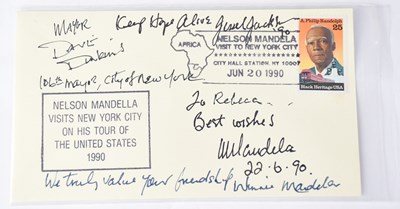 MAYOR
Dave Dinkins
106th mayor, City of New York
Keep Hope Alive
90
AFRICA
NELSON MANDELA
VISIT TO NEW YORK CITY
CITY HALL STATION NY 10007
JUN 20 1990
A. Philip Randolph
25
Black Heritage USA
NELSON MANDELLA
VISITS NEW YORK CITY
ON HIS TOUR OF
THE UNITED STATES
1990
To Rebecca
Best wishes
NMandela
22.6.90.
We truly value your friendship Winnie Mandela